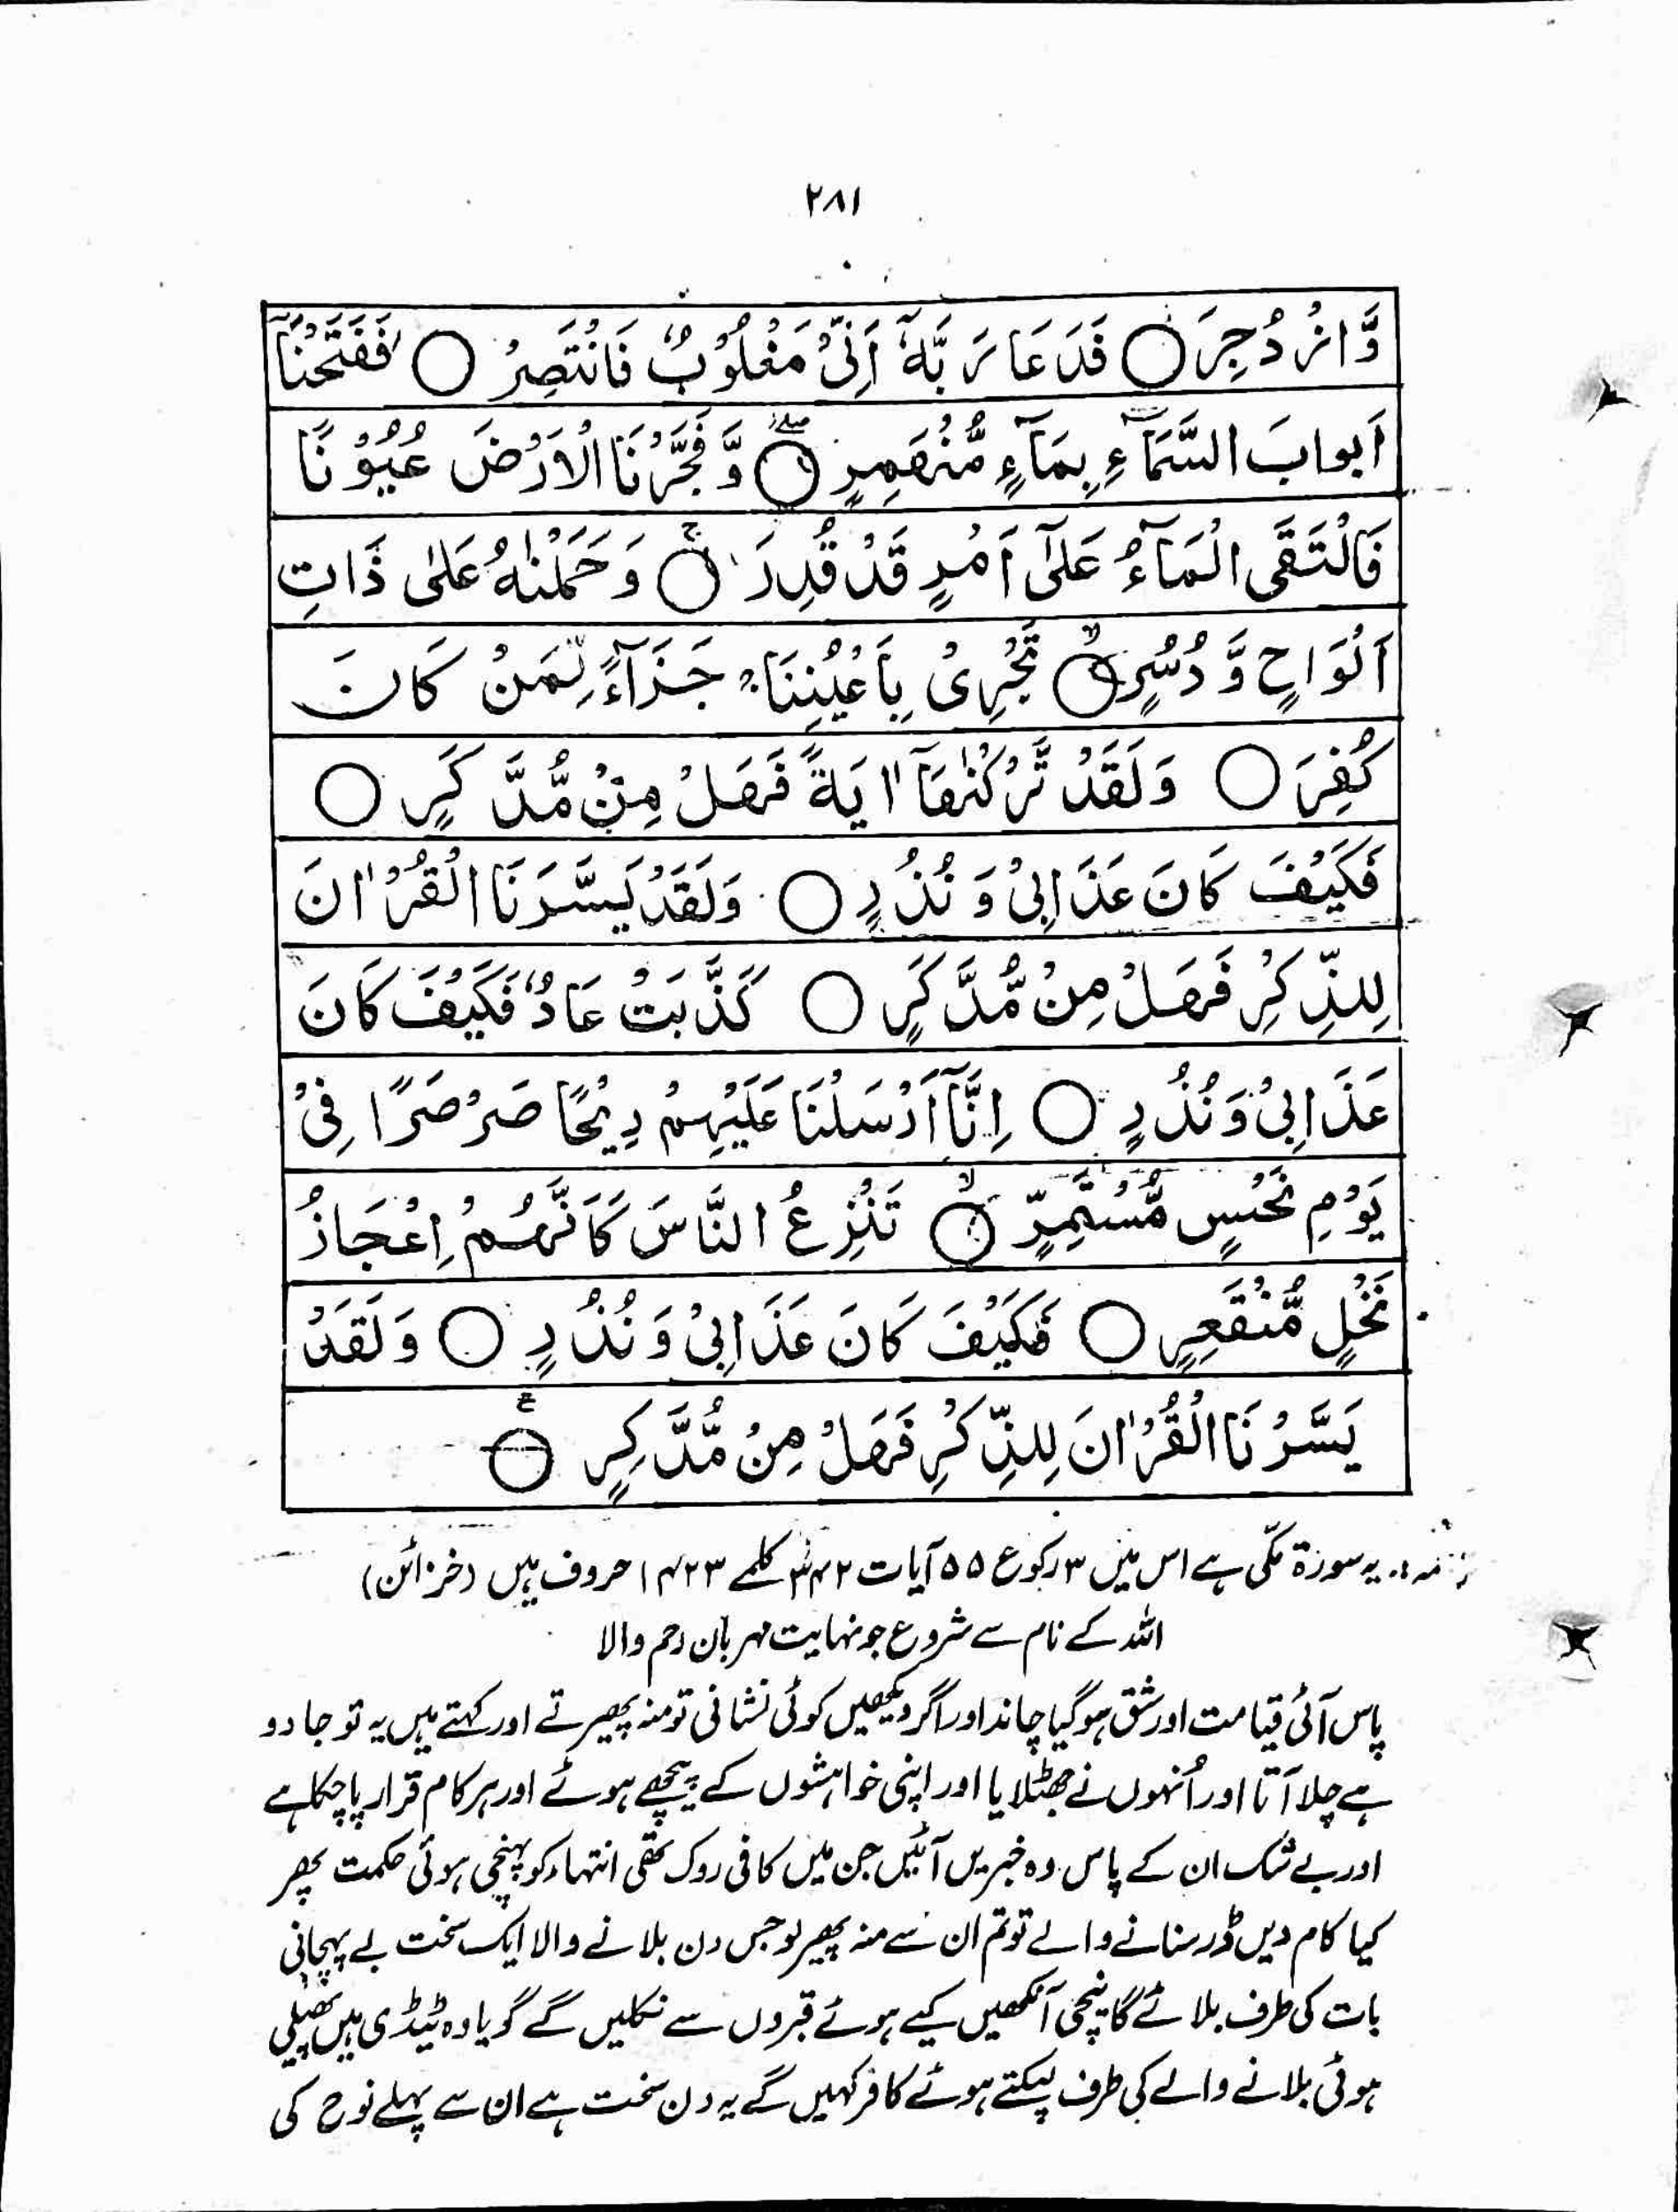 ۲۸۱
وَّازْدُجِرَ ○ فَدَعَا رَبَّهٗۤ اَنِّیْ مَغْلُوْبٌ فَانْتَصِرْ ○ فَفَتَحْنَاۤ
اَبوابَ السَّمَآءِ بِمَآءٍ مُّنْهَمِرٍ ○ وَّفَجَّرْنَا الْاَرْضَ عُیُوْنًا
فَالْتَقَی الْمَآءُ عَلٰۤی اَمْرٍ قَدْ قُدِرَ ○ وَحَمَلْنٰهُ عَلٰی ذَاتِ
اَلْوَاحٍ وَّ دُسُرٍ ○ تَجْرِیْ بِاَعْیُنِنَا جَزَآءً لِّمَنْ كَانَ
كُفِرَ ○ وَلَقَدْ تَّرَكْنٰهَاۤ اٰیَةً فَهَلْ مِنْ مُّدَّكِرٍ ○
فَكَیْفَ كَانَ عَذَابِیْ وَ نُذُرِ ○ وَلَقَدْ یَسَّرْنَا الْقُرْاٰنَ
لِلذِّكْرِ فَهَلْ مِنْ مُّدَّكِرٍ ○ كَذَّبَتْ عَادٌ فَكَیْفَ كَانَ
عَذَابِیْ وَنُذُرِ ○ اِنَّاۤ اَرْسَلْنَا عَلَیْهِمْ رِیْحًا صَرْصَرًا فِیْ
یَوْمِ نَحْسٍ مُّسْتَمِرٍّ ○ تَنْزِعُ النَّاسَ كَاَنَّهُمْ اِعْجَازُ
نَخْلٍ مُّنْقَعِرٍ ○ فَكَیْفَ كَانَ عَذَابِیْ وَ نُذُرِ ○ وَلَقَدْ
یَسَّرْنَا الْقُرْاٰنَ لِلذِّكْرِ فَهَلْ مِنْ مُّدَّكِرٍ ○
یہ سورۃ مکّی ہے اس میں ۳ رکوع ۵۵ آیات ۳۴۲ کلمے ۱۴۲۳ حروف ہیں (خزائن)
اللہ کے نام سے شروع جو نہایت مہربان رحم والا
پاس آئی قیامت اور شق ہو گیا چاند اور اگر دیکھیں کوئی نشانی تو منہ پھیرتے اور کہتے ہیں یہ تو جادو
ہے چلا آتا اور اُنہوں نے جھٹلایا اور اپنی خواہشوں کے پیچھے ہوئے اور ہر کام قرار پا چکا ہے
اور بے شک ان کے پاس وہ خبریں آئیں جن میں کافی روک تھی انتہاء کو پہنچی ہوئی حکمت پھر
کیا کام دیں ڈر سنانے والے تو تم ان سے منہ پھیر لو جس دن بلانے والا ایک سخت بے پہچانی
بات کی طرف بلائے گا نیچی آنکھیں کیے ہوئے قبروں سے نکلیں گے گویا وہ ٹیڈی ہیں پھیلی
ہوئی بلانے والے کی طرف لپکتے ہوئے کافر کہیں گے یہ دن سخت ہے ان سے پہلے نوح کی